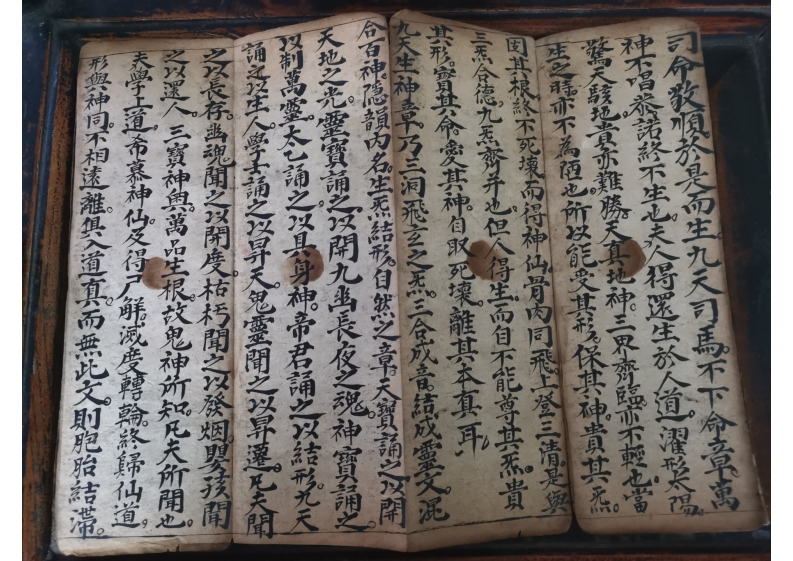 司命敬順於是而生。九天司馬。不下命章。萬
神不唱恭諾。終不生也。夫人得還生於人道。濯形太陽。
驚天駭地。貴亦難勝。天真地神。三界齊臨。亦不輕也。當
生之時。亦不為陋也。所以能愛其形。保其神。貴其炁。
固其根。終不死壞。而得神仙。骨肉同飛。上登三清。是與
三炁合德。九炁齊并也。但人得生。而自不能尊其炁。貴
其形。寶其命。愛其神。自取死壞。離其本真耳。
九天生神章。乃三洞飛玄之炁。三合成音。結成靈文。混
合百神。隱韻內名。生炁結形。自然之章。天寶誦之以開
天地之光。靈寶誦之以開九幽長夜之魂。神寶誦之
以制萬靈。太乙誦之以具身神。帝君誦之以結形。九天
誦之以生人。學士誦之以昇天。鬼靈聞之以昇遷。凡夫聞
之以長存。幽魂聞之以開度。枯朽聞之以發烟。嬰孩聞
之以還人。三寶神奧。萬品生根。故鬼神所知。凡夫所聞也。
夫學上道。希慕神仙。及得尸解。滅度轉輪。終歸仙道。
形與神同。不相遠離。俱入道真。而無此文。則胞胎結滯。